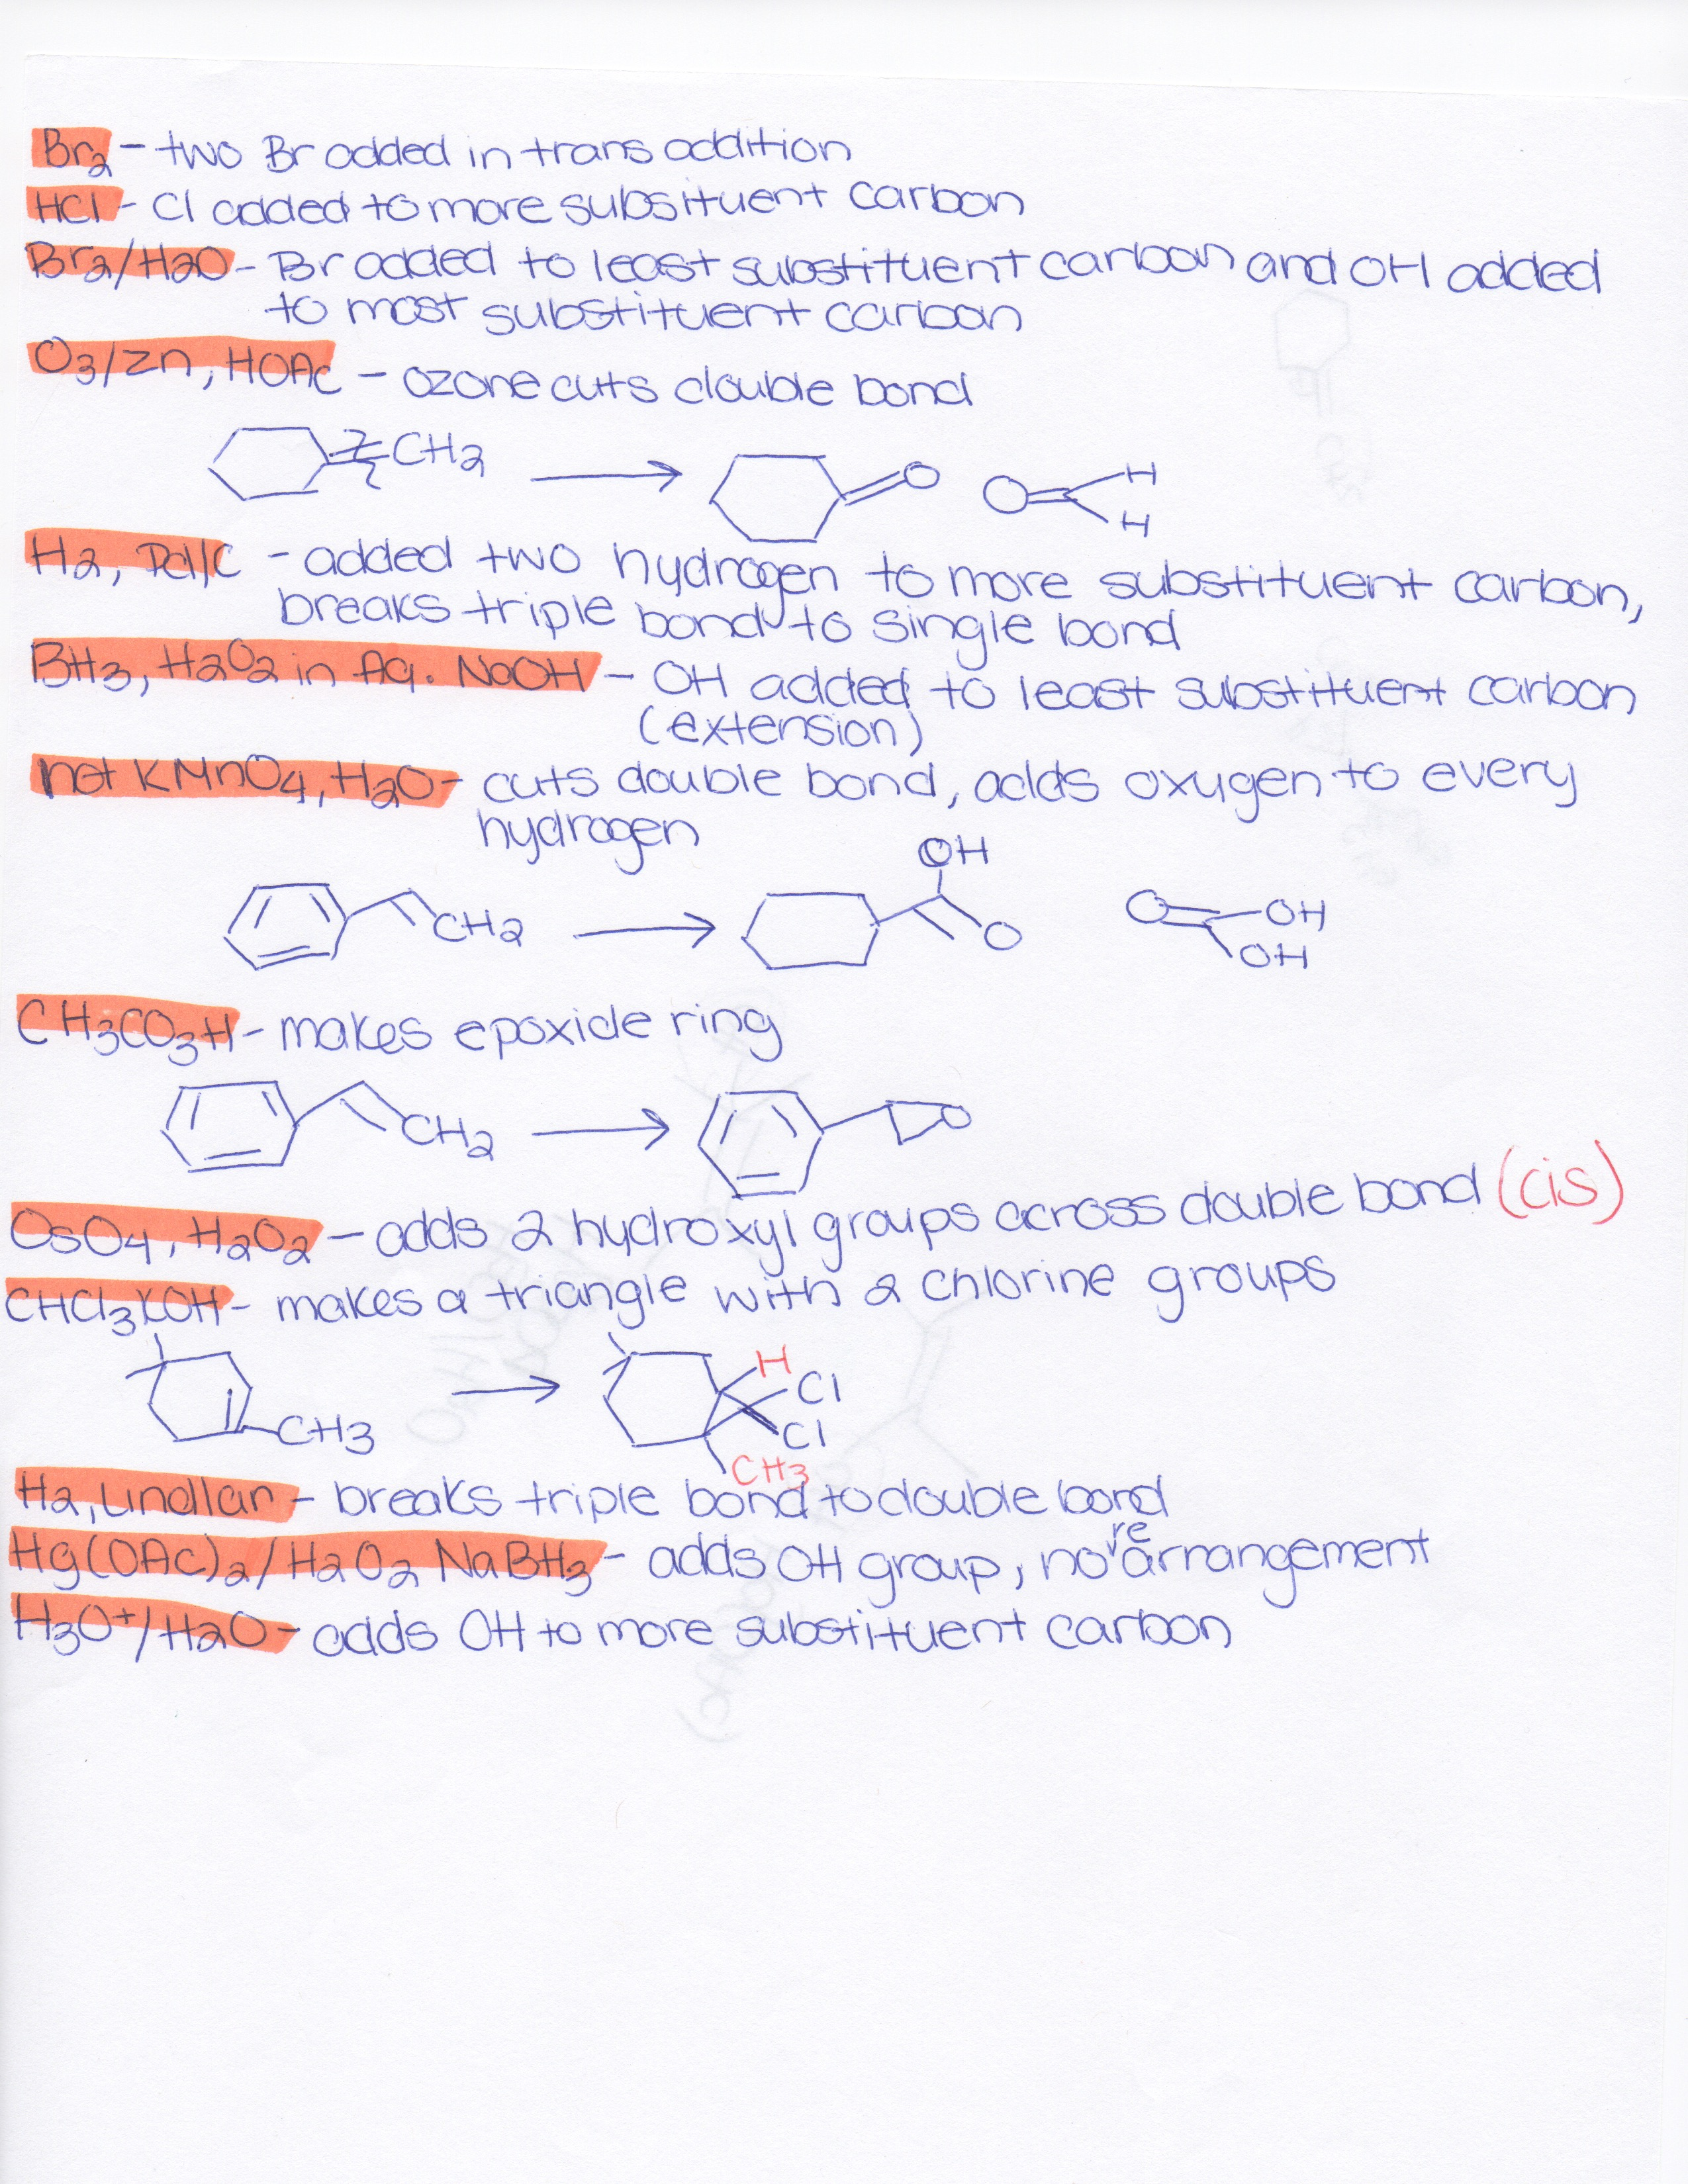 Br2 - two Br added in trans addition
HCl - Cl added to more subsituent carbon
Br2/H2O - Br added to least substituent carbon and OH added
to most substituent carbon
O3/Zn, HOAc - ozone cuts double bond
CH2
O O H
H
H2, Pd/C - added two hydrogen to more substituent carbon,
breaks triple bond to single bond
BH3, H2O2 in Aq. NaOH - OH added to least substituent carbon
(extension)
hot KMnO4, H2O - cuts double bond, adds oxygen to every
hydrogen
OH
CH2 O O OH
OH
CH3CO3H - makes epoxide ring
CH2 O
OsO4, H2O2 - adds 2 hydroxyl groups across double bond (cis)
CHCl3KOH - makes a triangle with 2 chlorine groups
H
Cl
CH3 Cl
CH3
H2, Lindlar - breaks triple bond to double bond
Hg(OAc)2/H2O2 NaBH3 - adds OH group, no rearrangement
H3O+/H2O - adds OH to more substituent carbon